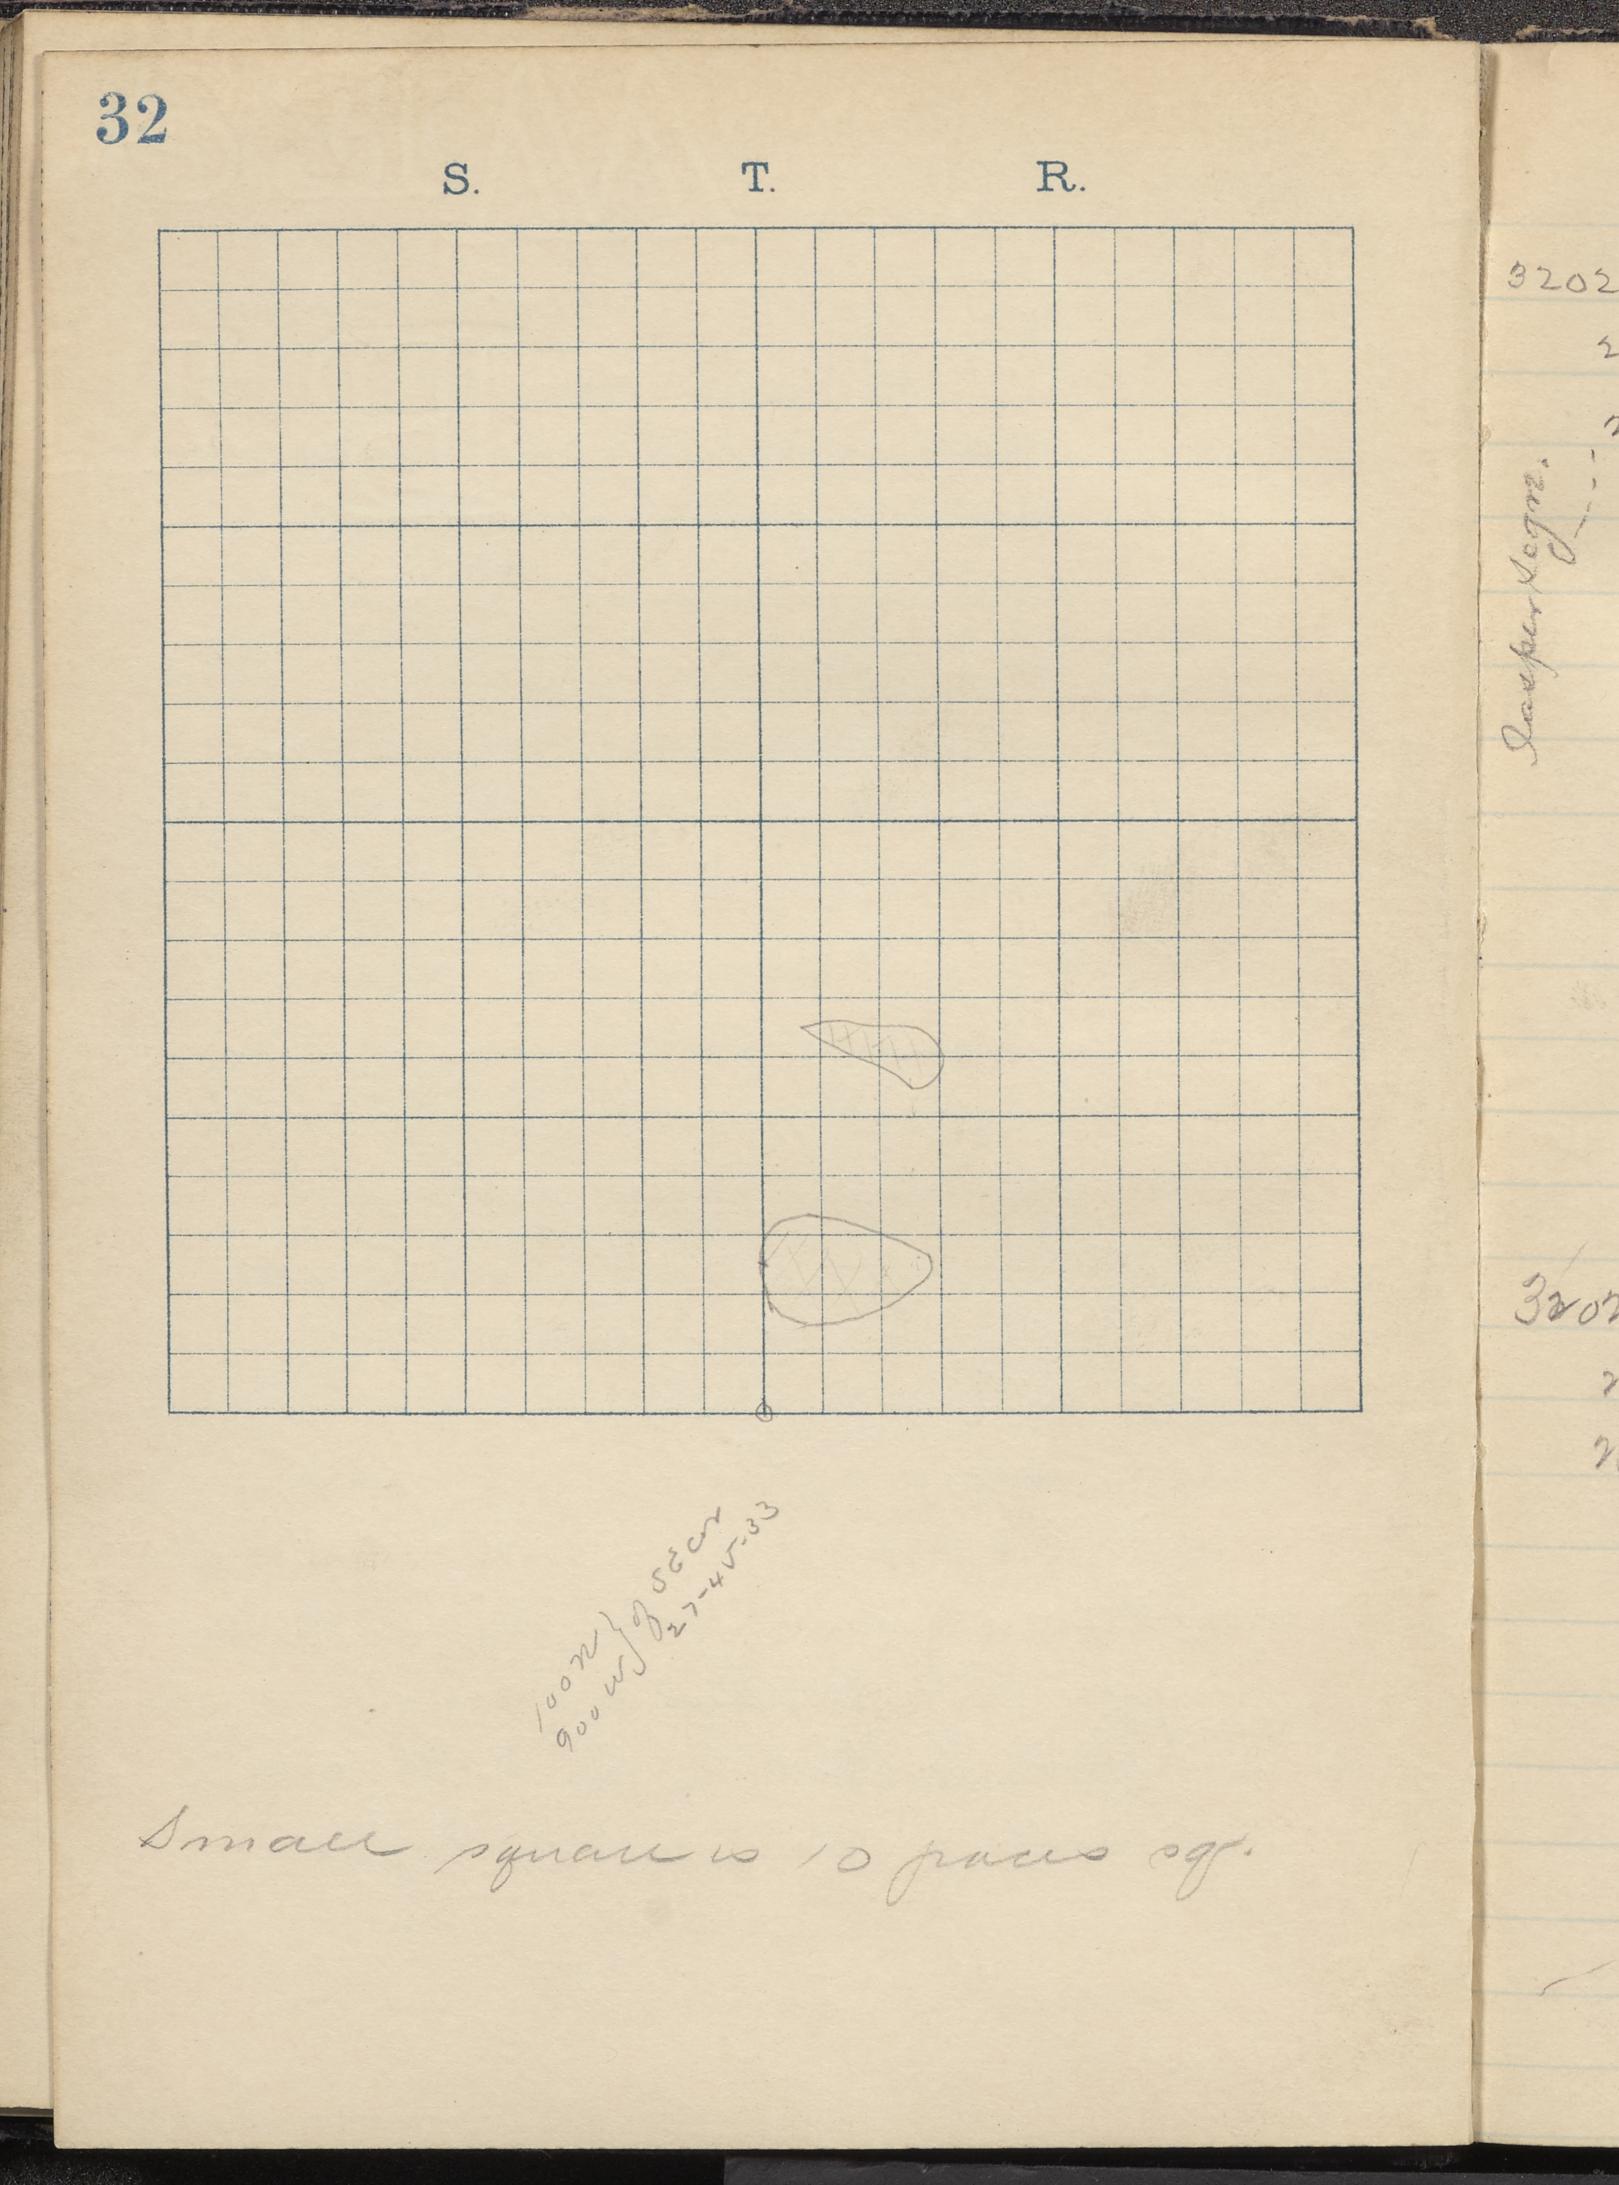 32
S. T. R.
100 N } of SE cor
900 W } 27-45-33
Small square is 10 paces sq.
3202
2
Jasper segr.
3202
2